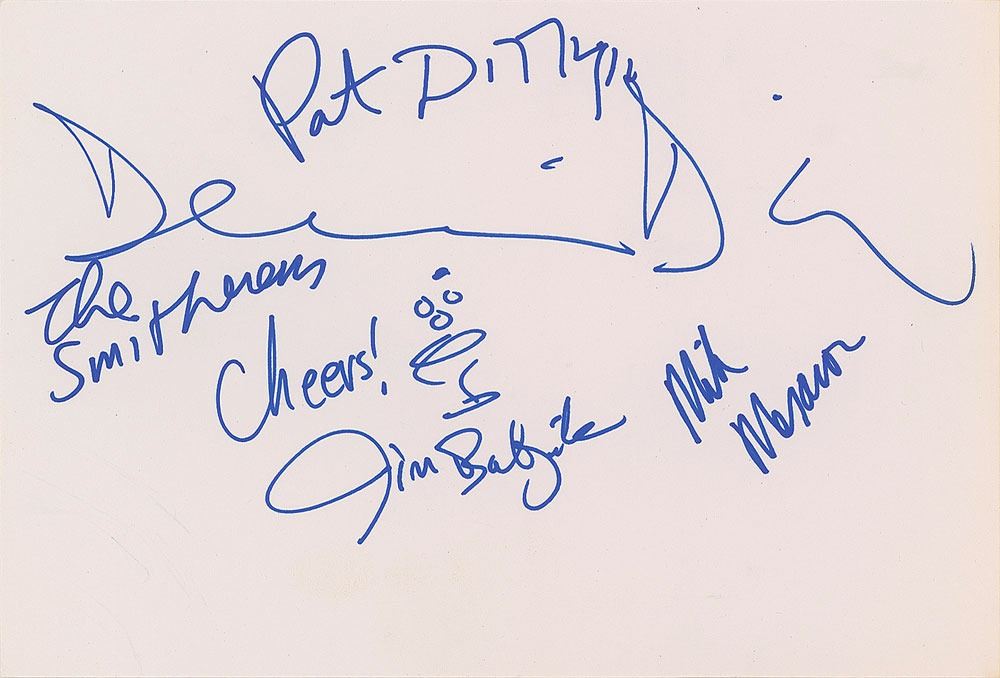 Pat DiNizio
Dennis Diken
The
Smithereens
Cheers!
Jim Babjak
Mike
Mesaros